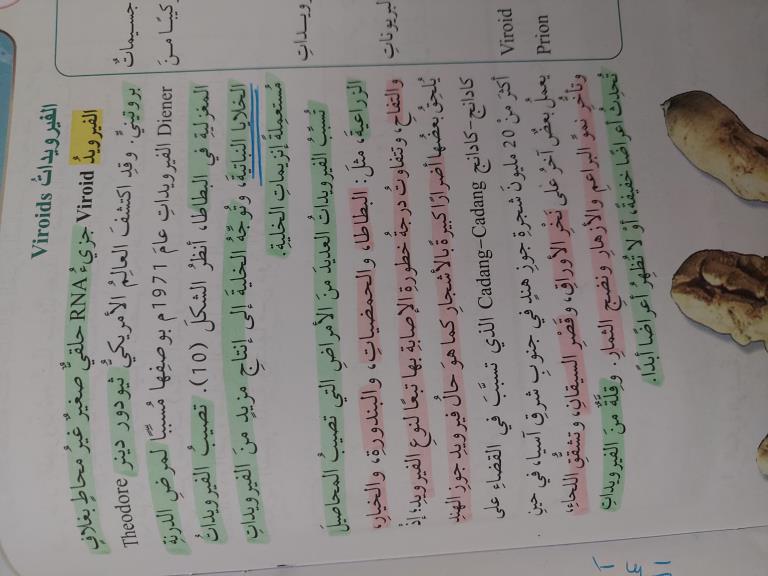 جسيماتٌ
Viroid
Prion
الفيرويداتُ Viroids
الفيرويدُ Viroid جزيءُ RNA حلقيٌّ صغيرٌ غيرُ محاطٍ بغلافٍ
بروتينيٍّ. وقدِ اكتشفَ العالِمُ الأمريكيُّ ثيودور دينر Theodore
Diener الفيرويداتِ عامَ 1971م بوصفِها مُسبِّبًا لمرضِ الدرنةِ
المغزليةِ في البطاطا، أنظرُ الشكلَ (10). تصيبُ الفيرويداتُ
الخلايا النباتيةَ، وتوجِّهُ الخليةَ إلى إنتاجِ مزيدٍ منَ الفيرويداتِ
مُستعمِلةً إنزيماتِ الخليةِ.
تُسبِّبُ الفيرويداتُ العديدَ منَ الأمراضِ التي تصيبُ المحاصيلَ
الزراعيةَ، مثلَ: البطاطا، والحمضياتِ، والبندورةِ، والخيارِ،
والتفاحِ، وتتفاوتُ درجةُ خطورةِ الإصابةِ بها تبعًا لنوعِ الفيرويدِ؛ إذْ
يُلحِقُ بعضُها أضرارًا كبيرةً بالأشجارِ كما هوَ حالُ فيرويدِ جوزِ الهندِ
كادانج-كادانج Cadang-Cadang الذي تسبَّبَ في القضاءِ على
أكثرَ منْ 20 مليونَ شجرةِ جوزِ هندٍ في جنوبِ شرقِ آسيا، في حينِ
يعملُ بعضٌ آخرُ على نَخْرِ الأوراقِ، وقصْرِ السيقانِ، وتشقُّقِ اللحاءِ،
وتأخُّرِ نموِّ البراعمِ والأزهارِ ونضجِ الثمارِ. وقلَّةٌ منَ الفيرويداتِ
تُحدِثُ أعراضًا خفيفةً، أوْ لا تُظهِرُ أعراضًا أبدًا.